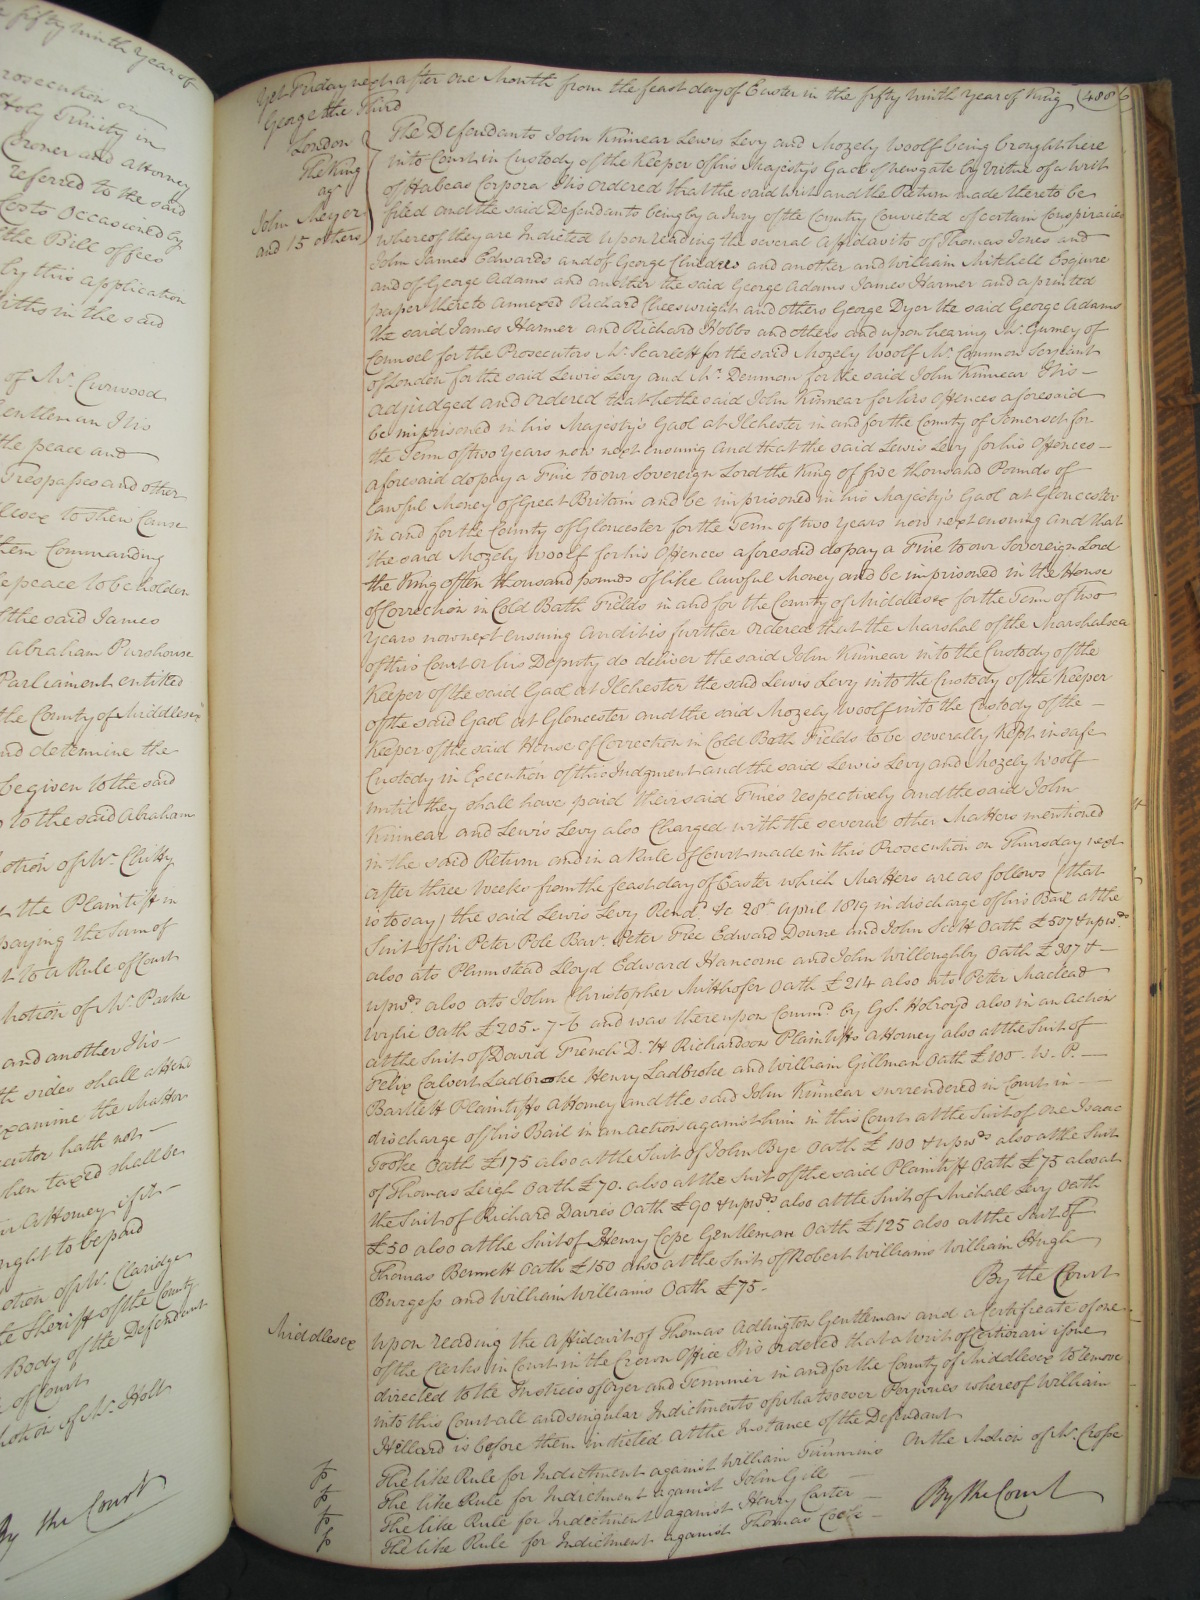 fifty ninth year of
prosecution on
Holy Trinity in
Coroner and attorney
referred to the said
Costs Occasioned by
the Bill of fees
by this application
in the said
of Mr. Curwood
Gentleman It is
the peace and
Trespasses and other
to shew Cause
them Commanding
peace to be holden
the said James
Abraham Purshouse
Parliament entitled
the County of Middlesex
and determine the
be given to the said
to the said Abraham
Motion of Mr. Chitty
the Plaintiff in
paying the Sum of
to a Rule of Court
Motion of Mr. Parke
and another It is
sides shall attend
examine the Matter
hath not
then taxed shall be
Attorney if it
ought to be paid
Motion of Mr. Claridge
the Sheriff of the County
Body of the Defendant
of Court
Motion of Mr. Holt
By the Court
Yet Friday next after One Month from the feast day of Easter in the fifty ninth year of King 488
George the Third
London
The King
agt
John Meyer
and 15 others
The Defendants John Kinnear Lewis Levy and Mozely Woolf being brought here
into Court in Custody of the Keeper of his Majesty's Gaol of Newgate by Virtue of a writ
of Habeas Corpora It is Ordered that the said writ and the Return made thereto be
filed and the said Defendants being by a Jury of the Country Convicted of certain Conspiracies
whereof they are Indicted Upon reading the several Affidavits of Thomas Jones and
John James Edwards and of George Childres and another and William Mitchell Esquire
and of George Adams and another the said George Adams James Harmer and a printed
paper thereto Annexed Richard Cheeswright and others George Dyer the said George Adams
the said James Harmer and Richard Hobbs and others and upon hearing Mr. Gurney of
Counsel for the Prosecutors Mr. Scarlett for the said Mozely Woolf Mr. Common Serjeant
of London for the said Lewis Levy and Mr. Denman for the said John Kinnear It is
adjudged and Ordered that he the said John Kinnear for his Offences aforesaid
be imprisoned in his Majesty's Gaol at Ilchester in and for the County of Somerset for
the Term of two Years now next ensuing And that the said Lewis Levy for his Offences
aforesaid do pay a Fine to our Sovereign Lord the King of five thousand Pounds of
lawful Money of Great Britain and be imprisoned in his Majesty's Gaol at Gloucester
in and for the County of Gloucester for the Term of two Years now next ensuing And that
the said Mozely Woolf for his Offences aforesaid do pay a Fine to our Sovereign Lord
the King of ten thousand pounds of like lawful Money and be imprisoned in the House
of Correction in Cold Bath Fields in and for the County of Middlesex for the Term of two
Years now next ensuing And it is further Ordered that the Marshal of the Marshalsea
of this Court or his Deputy do deliver the said John Kinnear into the Custody of the
Keeper of the said Gaol at Ilchester the said Lewis Levy into the Custody of the Keeper
of the said Gaol at Gloucester and the said Mozely Woolf into the Custody of the
Keeper of the said House of Correction in Cold Bath Fields to be severally kept in safe
Custody in Execution of this Judgment and the said Lewis Levy and Mozely Woolf
until they shall have paid their said Fines respectively and the said John
Kinnear and Lewis Levy also Charged with the several other Matters mentioned
in the said Return and in a Rule of Court made in this Prosecution on Thursday next
after three Weeks from the feast day of Easter which Matters are as follows (that
is to say) the said Lewis Levy Rendd. &c 28th April 1819 in discharge of his Bail at the
Suit of Sir Peter Pole Bart. Peter Free Edward Down and John Scott Oath £507 & upwds
also ats Plumstead Lloyd Edward Hancorne and John Willoughby Oath £307 &
upwds also ats John Christopher Mitthofer Oath £214 also ats Peter Maclead
Wylie Oath £205-7-6 and was thereupon Commd. by GS. Holroyd also in an action
at the Suit of David French D. H Richardson Plaintiffs Attorney also at the Suit of
Felix Calvert Ladbroke Henry Ladbroke and William Gillman Oath £100 - W. P.
Bartlett Plaintiffs Attorney and the said John Kinnear surrendered in Court in
discharge of his Bail in an action against him in this Court at the Suit of one Isaac
Tooke Oath £175 also at the Suit of John Bye Oath £100 & upwds also at the Suit
of Thomas Leigh Oath £70. also at the Suit of the said Plaintiff Oath £75 also at
the Suit of Richard Davies Oath £90 & upwds also at the Suit of Michael Levy Oath
£50 also at the Suit of Henry Cope Gentleman Oath £125 also at the Suit of
Thomas Bennett Oath £150 also at the Suit of Robert Williams William Hugh
Burgess and William Williams Oath £75.
By the Court
Middlesex
Upon reading the Affidavit of Thomas Adlington Gentleman and a Certificate of one
of the Clerks in Court in the Crown Office It is Ordered that a Writ of Certiorari issue
directed to the Justices of Oyer and Terminer in and for the County of Middlesex to remove
into this Court all and singular Indictments of whatsoever Perjuries whereof William
Hillard is before them indicted At the Instance of the Defendant
On the Motion of Mr. Crosse
The like Rule for Indictment against William Timmins
The like Rule for Indictment against John Gill
The like Rule for Indictment against Henry Carter
The like Rule for Indictment against Thomas Cook
By the Court